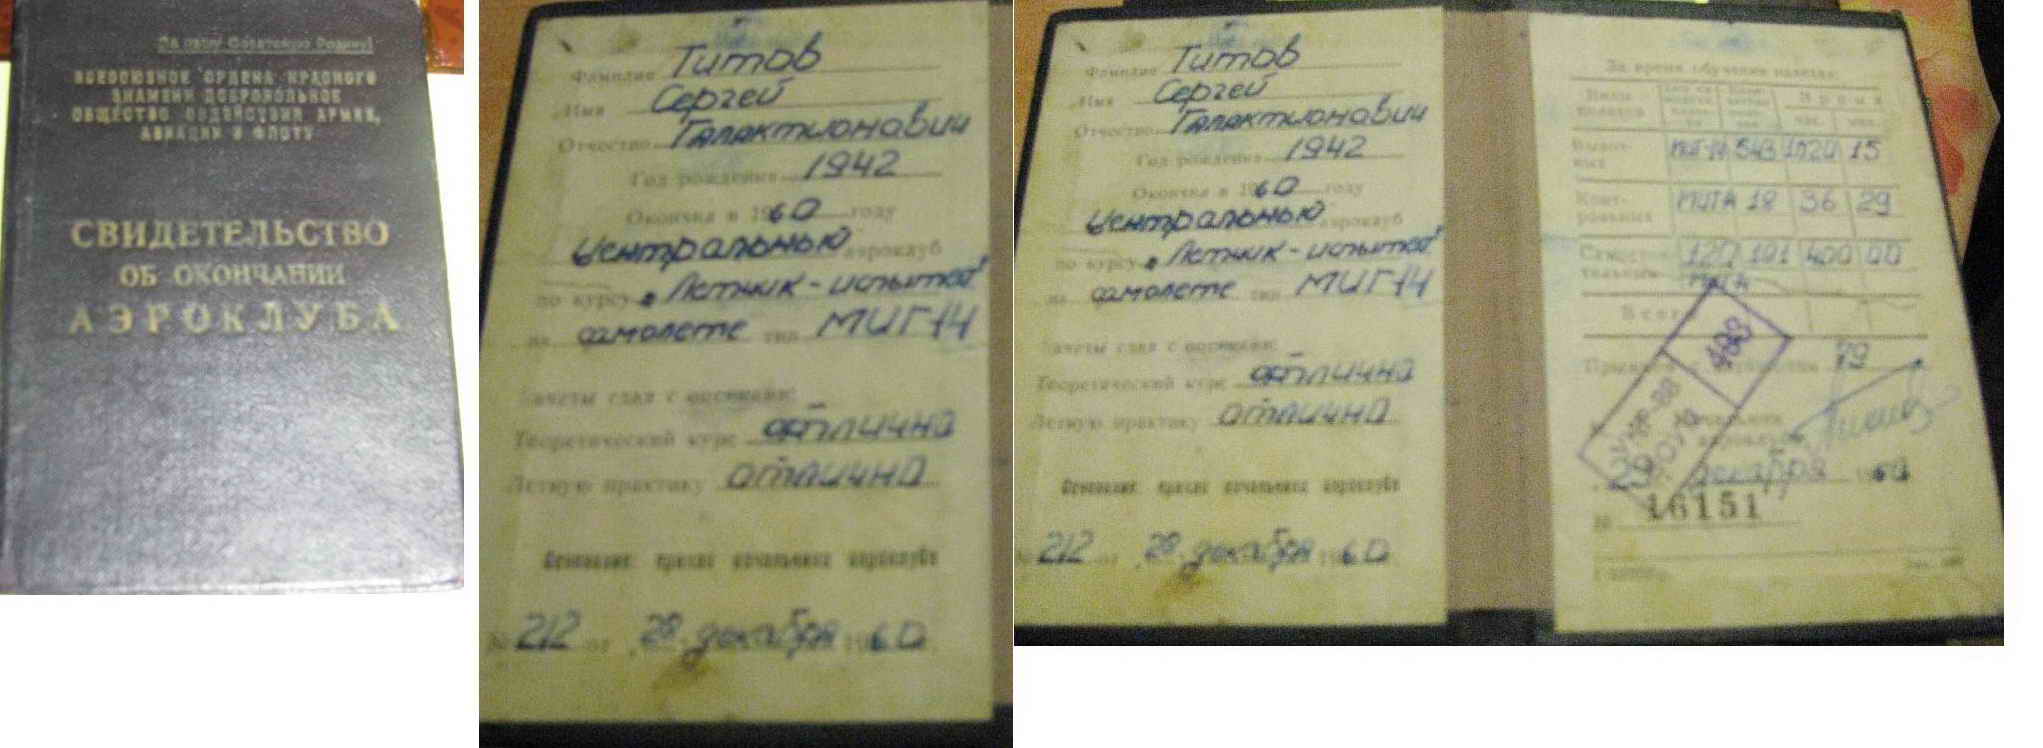 За нашу Советскую Родину!
ВСЕСОЮЗНОЕ ОРДЕНА КРАСНОГО
ЗНАМЕНИ ДОБРОВОЛЬНОЕ
ОБЩЕСТВО СОДЕЙСТВИЯ АРМИИ,
АВИАЦИИ И ФЛОТУ
СВИДЕТЕЛЬСТВО
ОБ ОКОНЧАНИИ
АЭРОКЛУБА
Фамилия Титов
Имя Сергей
Отчество Галактионович
Год рождения 1942
Окончил в 1960 году
Центральный аэроклуб
по курсу Летчик-испытат
на самолете тип МИГ-14
Зачеты сдал с оценками:
Теоретический курс отлично
Летную практику отлично
Основание: приказ начальника аэроклуба
№ 212 от 28 декабря 1960
Фамилия Титов
Имя Сергей
Отчество Галактионович
Год рождения 1942
Окончил в 1960 году
Центральный аэроклуб
по курсу Летчик-испытат
на самолете тип МИГ-14
Зачеты сдал с оценками:
Теоретический курс отлично
Летную практику отлично
Основание: приказ начальника аэроклуба
№ 212 от 28 декабря 1960
За время обучения налетал:
Виды полетов
Время
час. мин.
МИГ-14 543 1020 15
Конт-
рольных МИГА 18 36 29
120 191 400 00
МИГА
Всего
79
488
Начальник
аэроклуба
29 декабря 1960
№ 16151